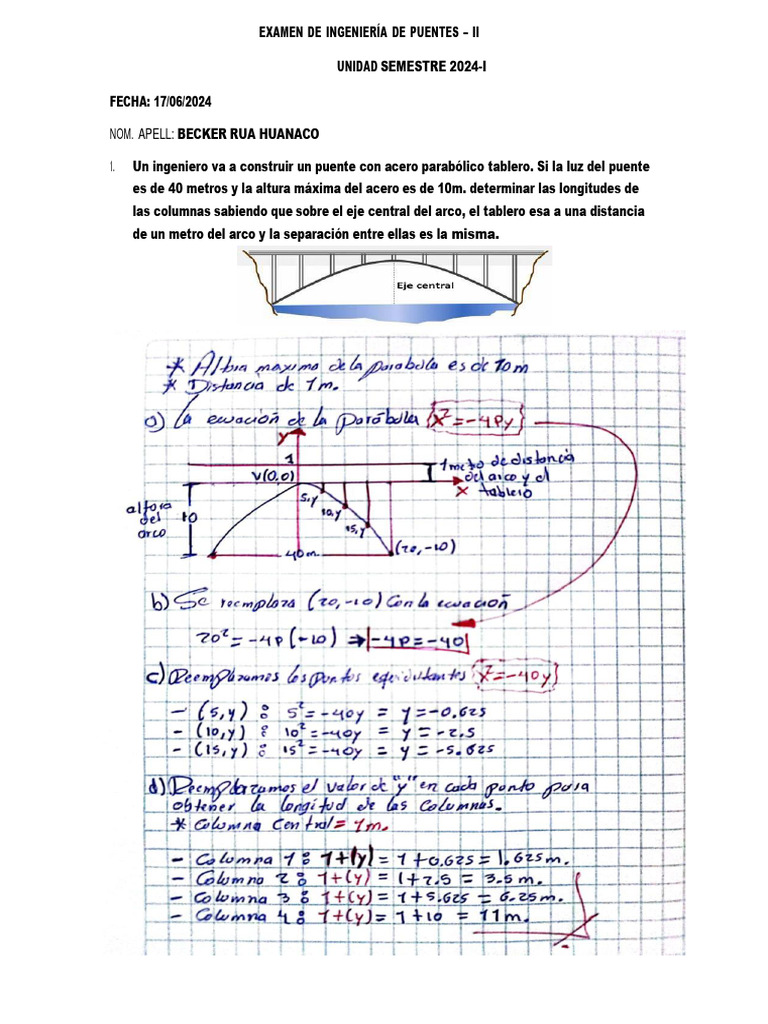 EXAMEN DE INGENIERÍA DE PUENTES – II
UNIDAD SEMESTRE 2024-I
FECHA: 17/06/2024
NOM. APELL: BECKER RUA HUANACO
1. Un ingeniero va a construir un puente con acero parabólico tablero. Si la luz del puente
es de 40 metros y la altura máxima del acero es de 10m. determinar las longitudes de
las columnas sabiendo que sobre el eje central del arco, el tablero esa a una distancia
de un metro del arco y la separación entre ellas es la misma.
Eje central
* Altura maxima de la parabola es de 10m
* Distancia de 1m.
a) La ecuación de la parábola {x²=-4Py}
y
1
V(0,0)
1 metro de distancia
del arco y el
x tablero
altura
del
arco
10
5,y
10,y
15,y
40m
(20,-10)
b) Se reemplaza (20,-10) Con la ecuación
20²=-4P(-10) ⇒ |-4P=-40|
c) Reemplazamos los puntos equidistantes {x²=-40y}
- (5,y) : 5²=-40y = y=-0.625
- (10,y) : 10²=-40y = y=-2.5
- (15,y) : 15²=-40y = y=-5.625
d) Reemplazamos el valor de "y" en cada punto para
obtener la longitud de las Columnas.
* Columna Central = 1m.
- Columna 1 : 1+(y) = 1+0.625 = 1.625m.
- Columna 2 : 1+(y) = 1+2.5 = 3.5m.
- Columna 3 : 1+(y) = 1+5.625 = 6.25m.
- Columna 4 : 1+(y) = 1+10 = 11m.